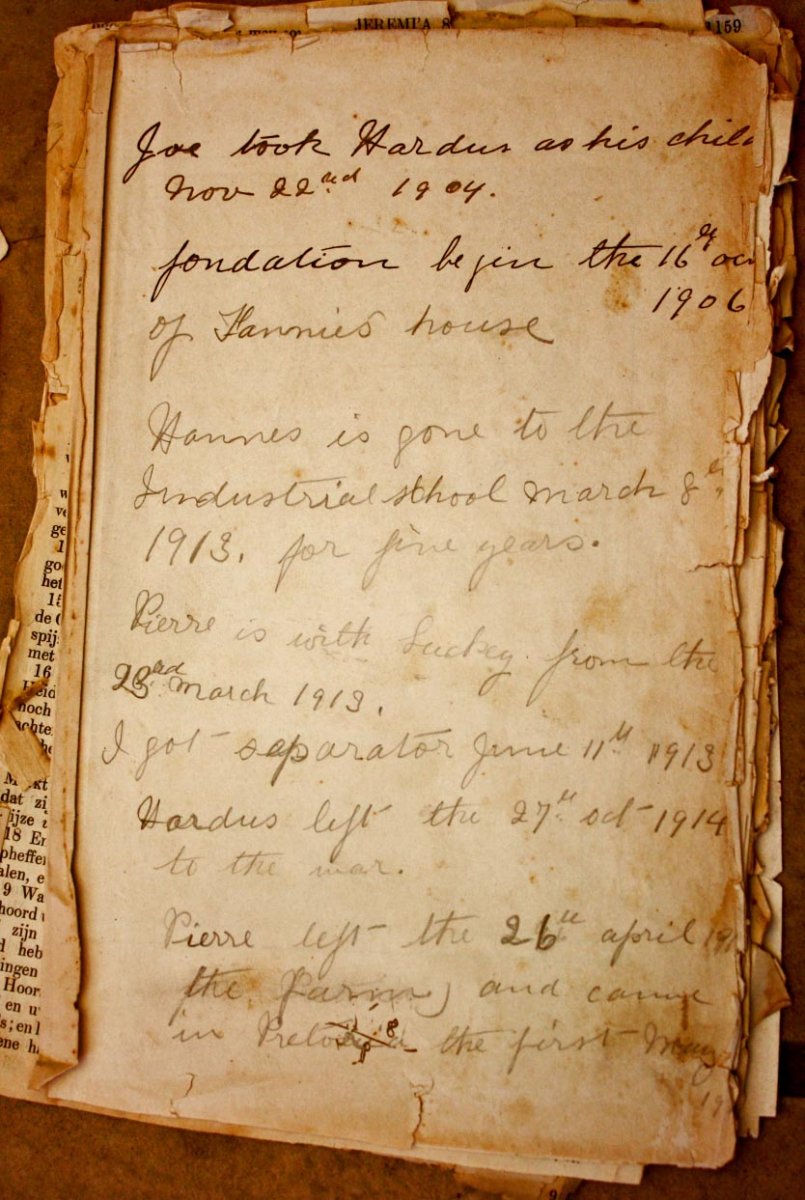 JEREMIA 8
1159
Joe took Hardus as his chil
Nov 22nd 1904.
fondation begin the 16th
1906
of Hannies house
Hannes is gone to the
Industrial school march 8th
1913. for five years.
Pierre is with Luckey from the
23rd march 1913.
I got separator June 11th 1913
Hardus left the 27th oct 1914
to the war.
Pierre left the 26th april 191
the farm, and came
in the first May
19
ge
1
go
het
15
de
spij
met
16
Heid
noch
achte
he
dat zij
ijze
18 En
pheffe
alen, e
9 Wa
hoord
zijn
d heb
ingen
Hoor
en u
s; en
ene h